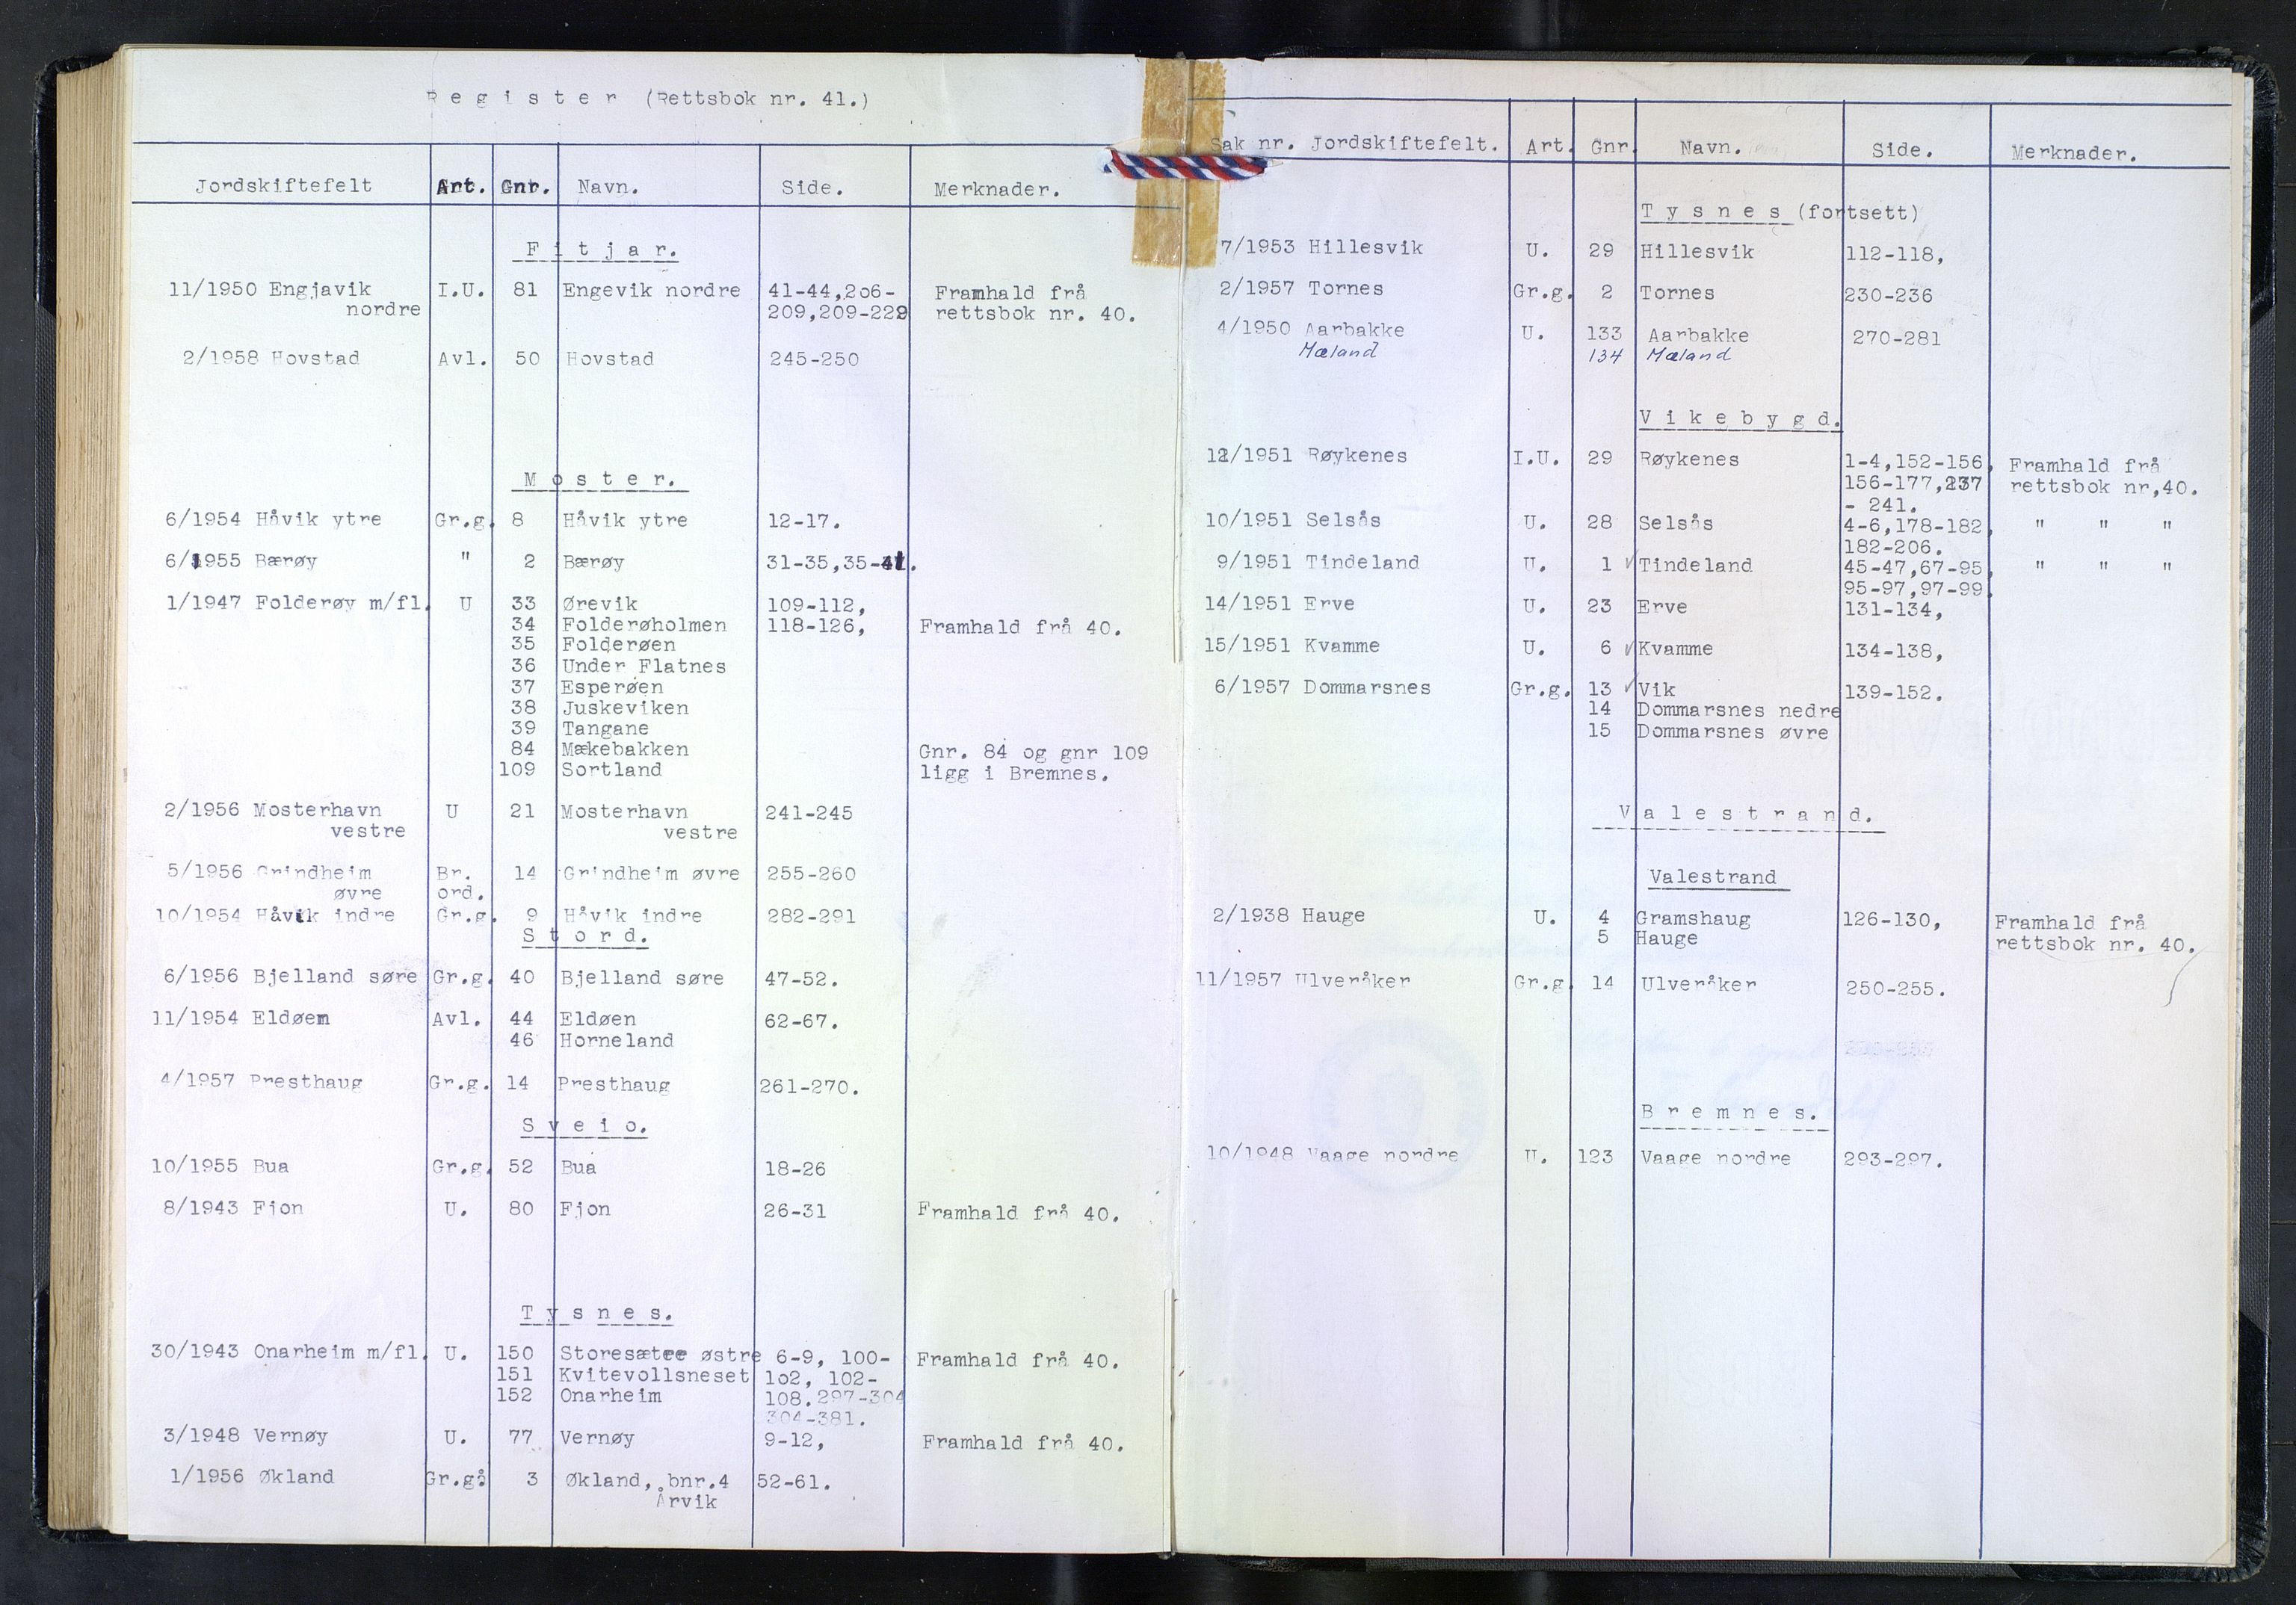 R e g i s t e r (Rettsbok nr. 41.)
Jordskiftefelt Art. Gnr. Navn. Side. Merknader.
F i t j a r.
11/1950 Engjavik I.U. 81 Engevik nordre 41-44,2o6- Framhald frå
nordre 209,209-229 rettsbok nr. 40.
2/1958 Hovstad Avl. 50 Hovstad 245-250
M o s t e r.
6/1954 Håvik ytre Gr.g. 8 Håvik ytre 12-17.
6/1955 Bærøy " 2 Bærøy 31-35,35-41.
1/1947 Folderøy m/fl. U 33 Ørevik 109-112,
34 Folderøholmen 118-126, Framhald frå 40.
35 Folderøen
36 Under Flatnes
37 Esperøen
38 Juskeviken
39 Tangane
84 Mækebakken Gnr. 84 og gnr 109
109 Sortland ligg i Bremnes.
2/1956 Mosterhavn U 21 Mosterhavn 241-245
vestre vestre
5/1956 Grindheim Br. 14 Grindheim øvre 255-260
øvre ord.
10/1954 Håvik indre Gr.g. 9 Håvik indre 282-291
S t o r d.
6/1956 Bjelland søre Gr.g. 40 Bjelland søre 47-52.
11/1954 Eldøen Avl. 44 Eldøen 62-67.
46 Horneland
4/1957 Presthaug Gr.g. 14 Presthaug 261-270.
S v e i o.
10/1955 Bua Gr.g. 52 Bua 18-26
8/1943 Fjon U. 80 Fjon 26-31 Framhald frå 40.
T y s n e s.
30/1943 Onarheim m/fl. U. 150 Storesætre østre 6-9, 100- Framhald frå 40.
151 Kvitevollsneset 1o2, 102-
152 Onarheim 108.297-304
304-381.
3/1948 Vernøy U. 77 Vernøy 9-12, Framhald frå 40.
1/1956 Økland Gr.gå 3 Økland, bnr.4 52-61.
Årvik
Sak nr. Jordskiftefelt. Art. Gnr. Navn. Side. Merknader.
T y s n e s (fortsett)
7/1953 Hillesvik U. 29 Hillesvik 112-118,
2/1957 Tornes Gr.g. 2 Tornes 230-236
4/1950 Aarbakke U. 133 Aarbakke 270-281
Mæland 134 Mæland
V i k e b y g d.
12/1951 Røykenes I.U. 29 Røykenes 1-4,152-156, Framhald frå
156-177,237 rettsbok nr,40.
- 241.
10/1951 Selsås U. 28 Selsås 4-6,178-182, " " "
182-206.
9/1951 Tindeland U. 1 ✓ Tindeland 45-47,67-95, " " "
95-97,97-99.
14/1951 Erve U. 23 Erve 131-134,
15/1951 Kvamme U. 6 ✓ Kvamme 134-138,
6/1957 Dommarsnes Gr.g. 13 ✓ Vik 139-152.
14 Dommarsnes nedre
15 Dommarsnes øvre
V a l e s t r a n d.
Valestrand
2/1938 Hauge U. 4 Gramshaug 126-130, Framhald frå
5 Hauge rettsbok nr. 40.
11/1957 Ulveråker Gr.g. 14 Ulveråker 250-255.
B r e m n e s.
10/1948 Vaage nordre U. 123 Vaage nordre 293-297.